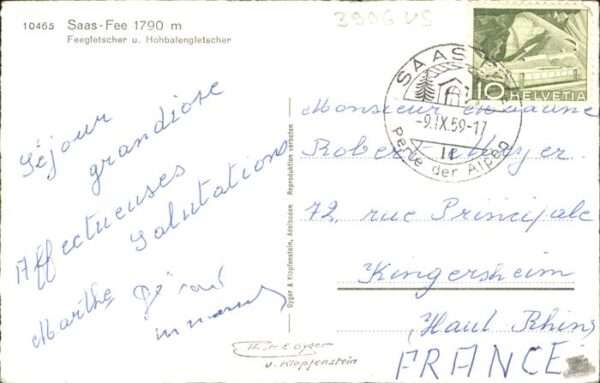 10465 Saas-Fee 1790 m
Feegletscher u. Hohbalengletscher
3906 US
Séjour
grandiose
Affectueuses
Salutations
Marthe Gérard
SAAS-FEE
-9.IX.59-17
Perle der Alpen
10
HELVETIA
Gyger & Klopfenstein, Adelboden Reproduktion verboten
Monsieur Madame
Robert
72, rue Principale
Kingersheim
(Haut Rhin)
FRANCE
u. Klopfenstein